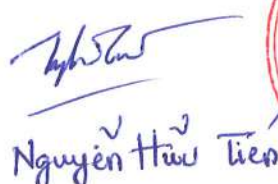 Nguyễn Hữu Tiến